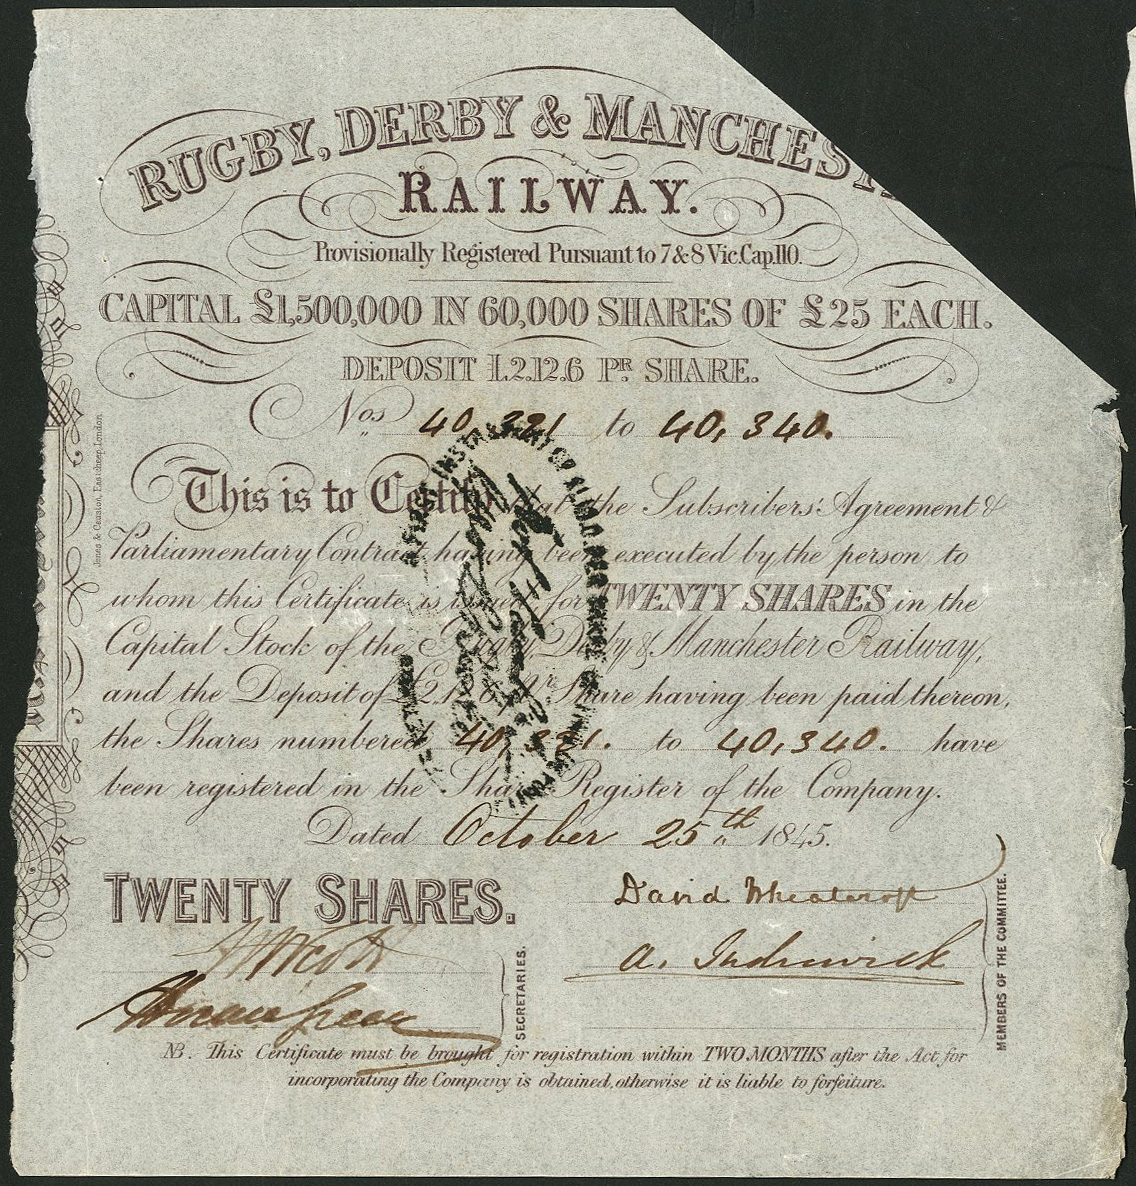 RUGBY, DERBY & MANCHEST
RAILWAY.
Provisionally Registered Pursuant to 7 & 8 Vic. Cap. 110.
CAPITAL £1,500,000 IN 60,000 SHARES OF £25 EACH.
DEPOSIT £2.12.6 PR. SHARE.
Nos 40,321 to 40,340.
This is to Certify that the Subscribers' Agreement &
Parliamentary Contract having been executed by the person to
whom this Certificate is issued for TWENTY SHARES in the
Capital Stock of the Rugby, Derby & Manchester Railway,
and the Deposit of £2.12.6 Pr Share having been paid thereon,
the Shares numbered 40,321. to 40,340. have
been registered in the Share Register of the Company.
Dated October 25th 1845.
TWENTY SHARES.
David Wheatcroft
A.
SECRETARIES.
MEMBERS OF THE COMMITTEE.
NB. This Certificate must be brought for registration within TWO MONTHS after the Act for
incorporating the Company is obtained, otherwise it is liable to forfeiture.
Jones & Causton, Eastcheap, London
FIRST INSTALMENT OF